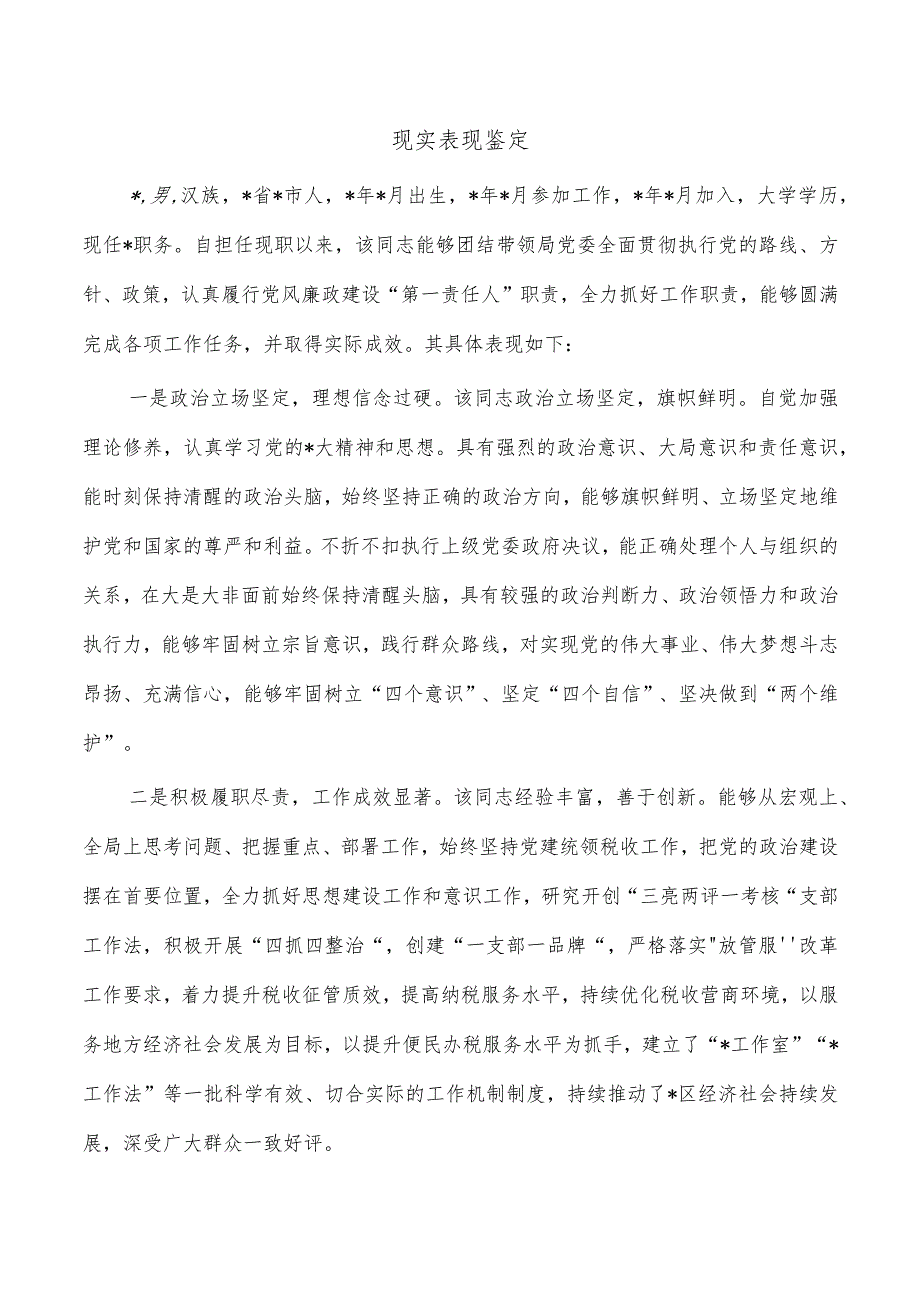 现实表现鉴定
*,男,汉族，*省*市人，*年*月出生，*年*月参加工作，*年*月加入，大学学历，
现任*职务。自担任现职以来，该同志能够团结带领局党委全面贯彻执行党的路线、方
针、政策，认真履行党风廉政建设“第一责任人”职责，全力抓好工作职责，能够圆满
完成各项工作任务，并取得实际成效。其具体表现如下：
一是政治立场坚定，理想信念过硬。该同志政治立场坚定，旗帜鲜明。自觉加强
理论修养，认真学习党的*大精神和思想。具有强烈的政治意识、大局意识和责任意识，
能时刻保持清醒的政治头脑，始终坚持正确的政治方向，能够旗帜鲜明、立场坚定地维
护党和国家的尊严和利益。不折不扣执行上级党委政府决议，能正确处理个人与组织的
关系，在大是大非面前始终保持清醒头脑，具有较强的政治判断力、政治领悟力和政治
执行力，能够牢固树立宗旨意识，践行群众路线，对实现党的伟大事业、伟大梦想斗志
昂扬、充满信心，能够牢固树立“四个意识”、坚定“四个自信”、坚决做到“两个维
护”。
二是积极履职尽责，工作成效显著。该同志经验丰富，善于创新。能够从宏观上、
全局上思考问题、把握重点、部署工作，始终坚持党建统领税收工作，把党的政治建设
摆在首要位置，全力抓好思想建设工作和意识工作，研究开创“三亮两评一考核“支部
工作法，积极开展“四抓四整治“，创建“一支部一品牌“，严格落实"放管服''改革
工作要求，着力提升税收征管质效，提高纳税服务水平，持续优化税收营商环境，以服
务地方经济社会发展为目标，以提升便民办税服务水平为抓手，建立了“*工作室”“*
工作法”等一批科学有效、切合实际的工作机制制度，持续推动了*区经济社会持续发
展，深受广大群众一致好评。